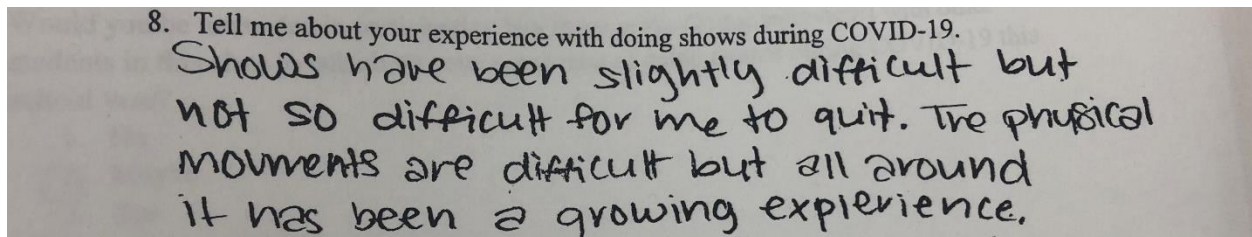 8. Tell me about your experience with doing shows during COVID-19.
Shows have been slightly difficult but
not so difficult for me to quit. The physical
movments are difficult but all around
it has been a growing explerience.